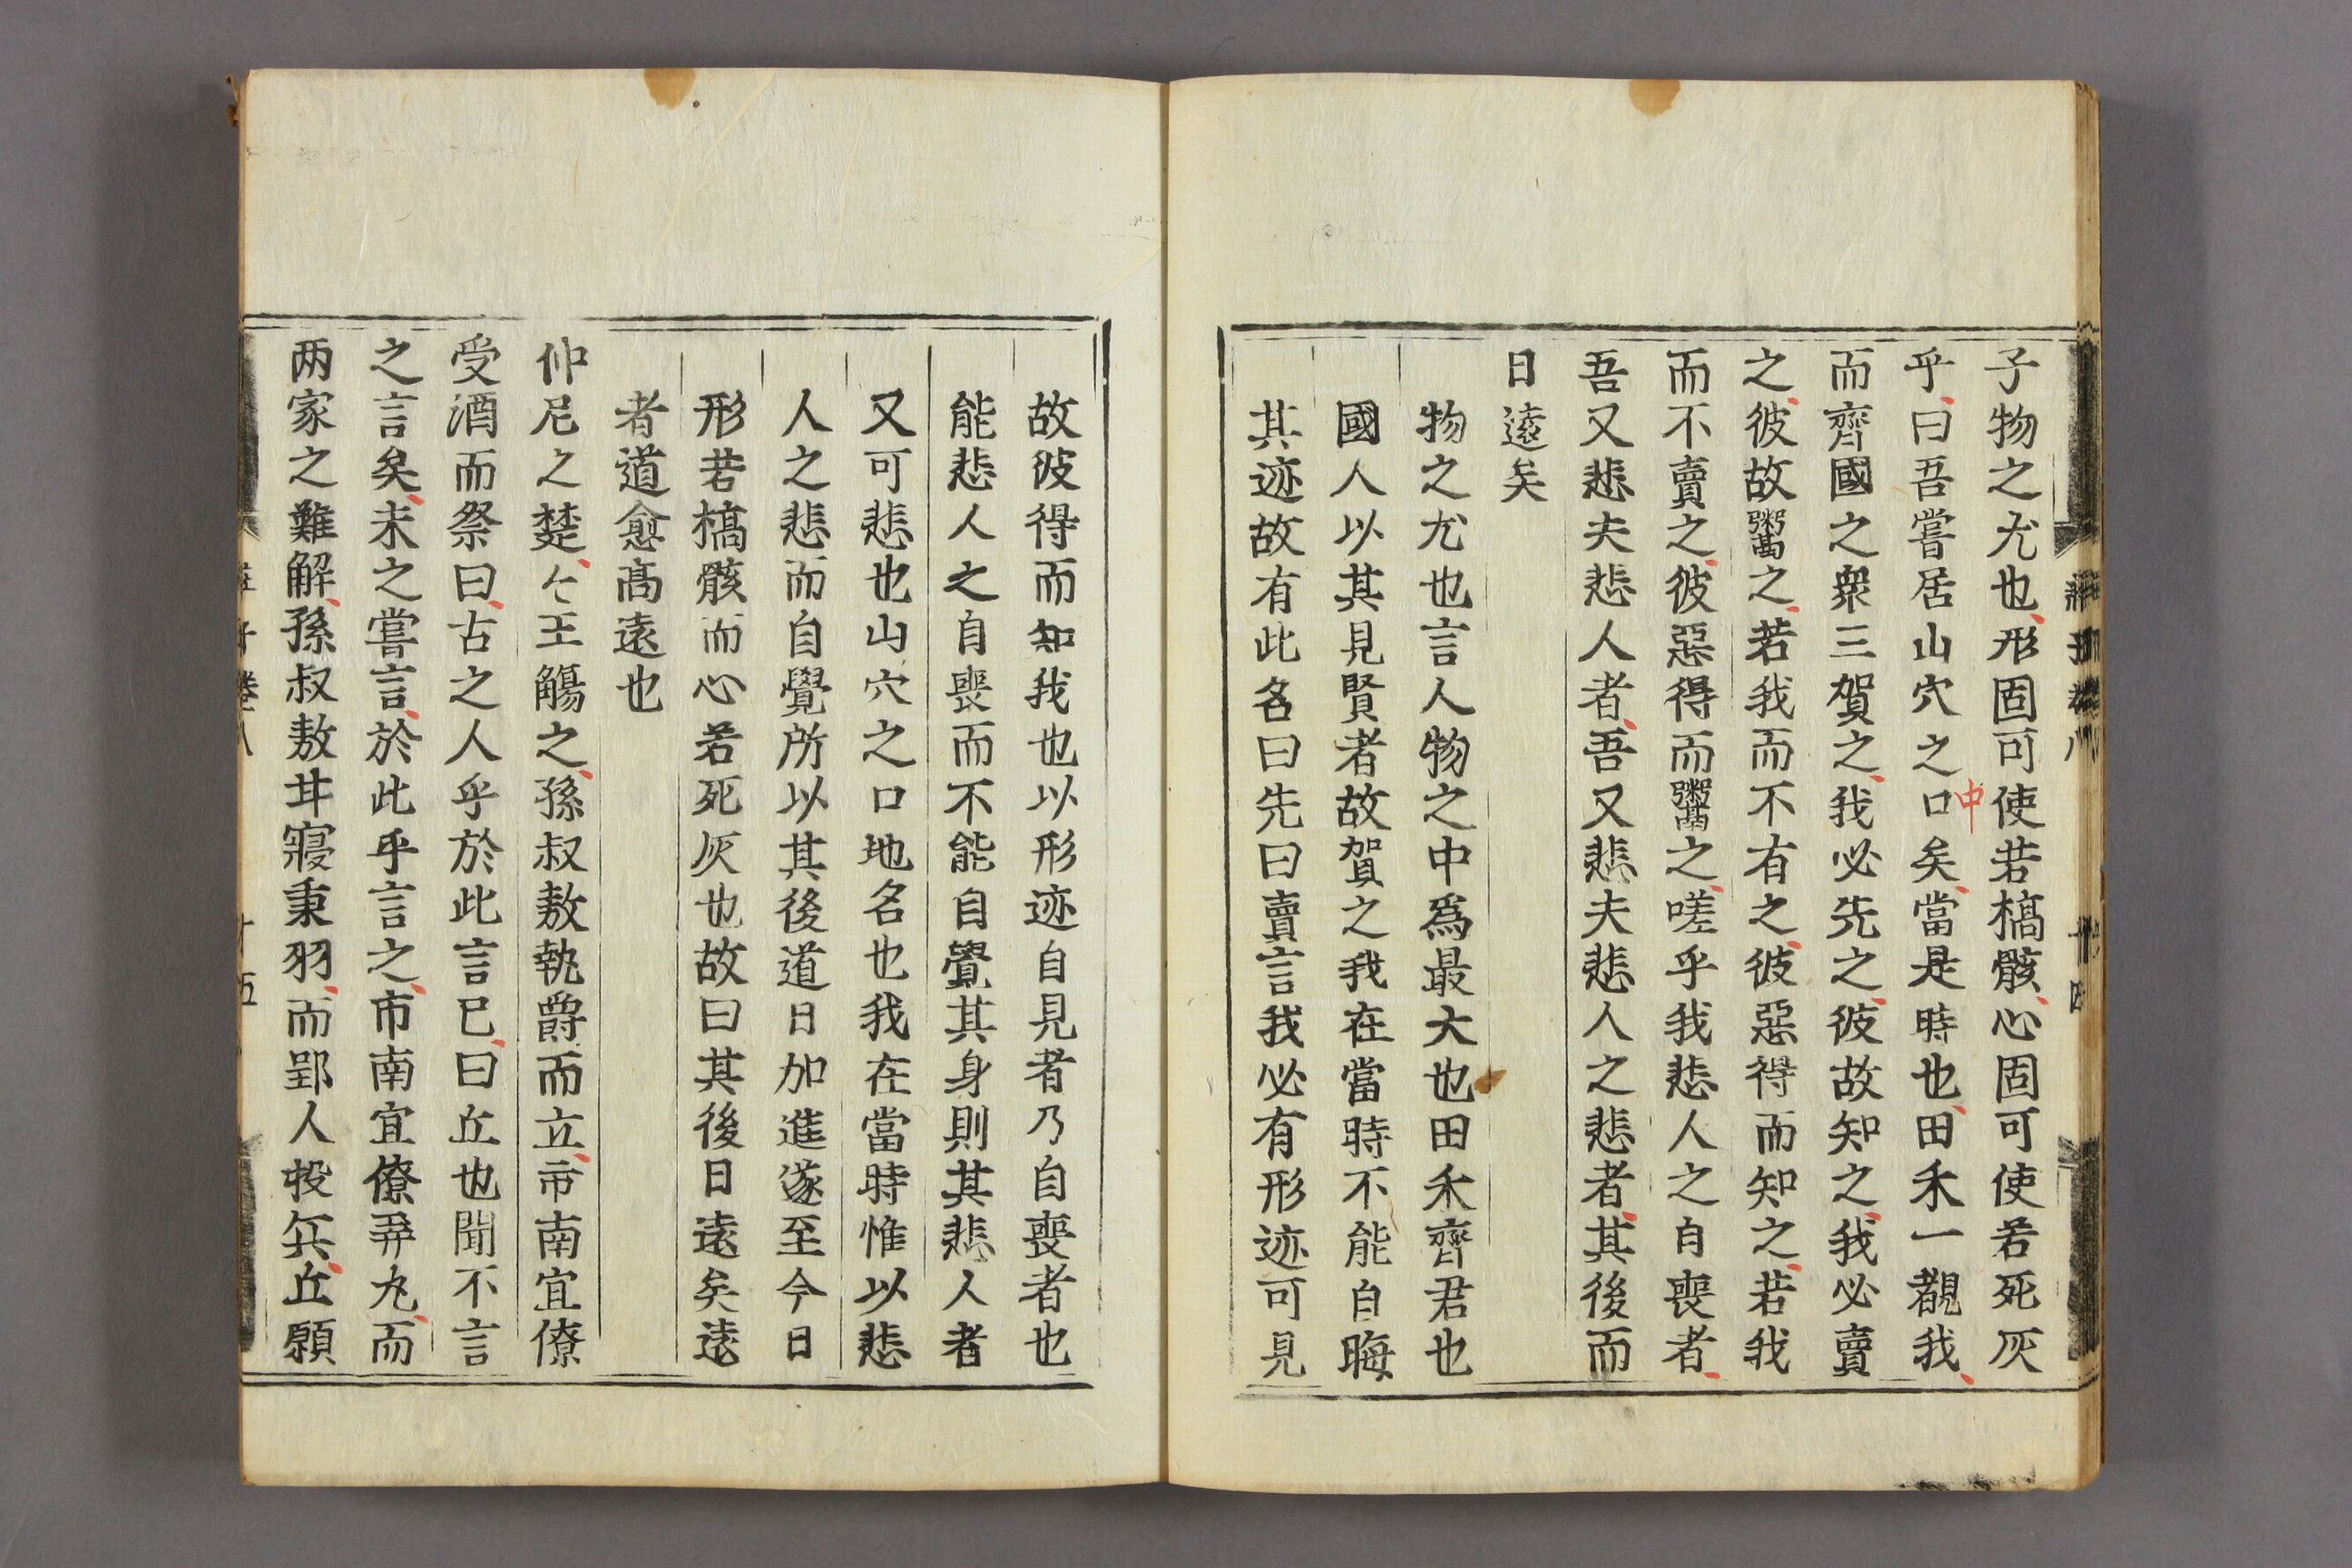 子物之尤也形固可使若槁骸心固可使若死灰
乎曰吾嘗居山穴之口矣當是時也田禾一覩我
中
而齊國之衆三賀之我必先之彼故知之我必賣
之彼故鬻之若我而不有之彼惡得而知之若我
而不賣之彼惡得而鬻之嗟乎我悲人之自喪者
吾又悲夫悲人者吾又悲夫悲人之悲者其後而
日逺矣
物之尤也言人物之中爲最大也田禾齊君也
國人以其見賢者故賀之我在當時不能自晦
其迹故有此名曰先曰賣言我必有形迹可見
故彼得而知我也以形迹自見者乃自喪者也
能悲人之自喪而不能自覺其身則其悲人者
又可悲也山穴之口地名也我在當時惟以悲
人之悲而自覺所以其後道日加進遂至今日
形若槁骸而心若死灰也故曰其後日逺矣逺
者道愈髙逺也
仲尼之楚々王觴之孫叔敖執爵而立市南宜僚
受酒而祭曰古之人乎於此言已曰丘也聞不言
之言矣未之嘗言於此乎言之市南宜僚弄丸而
两家之難解孫叔敖甘寢秉羽而郢人投兵丘願
莊子卷八 十五